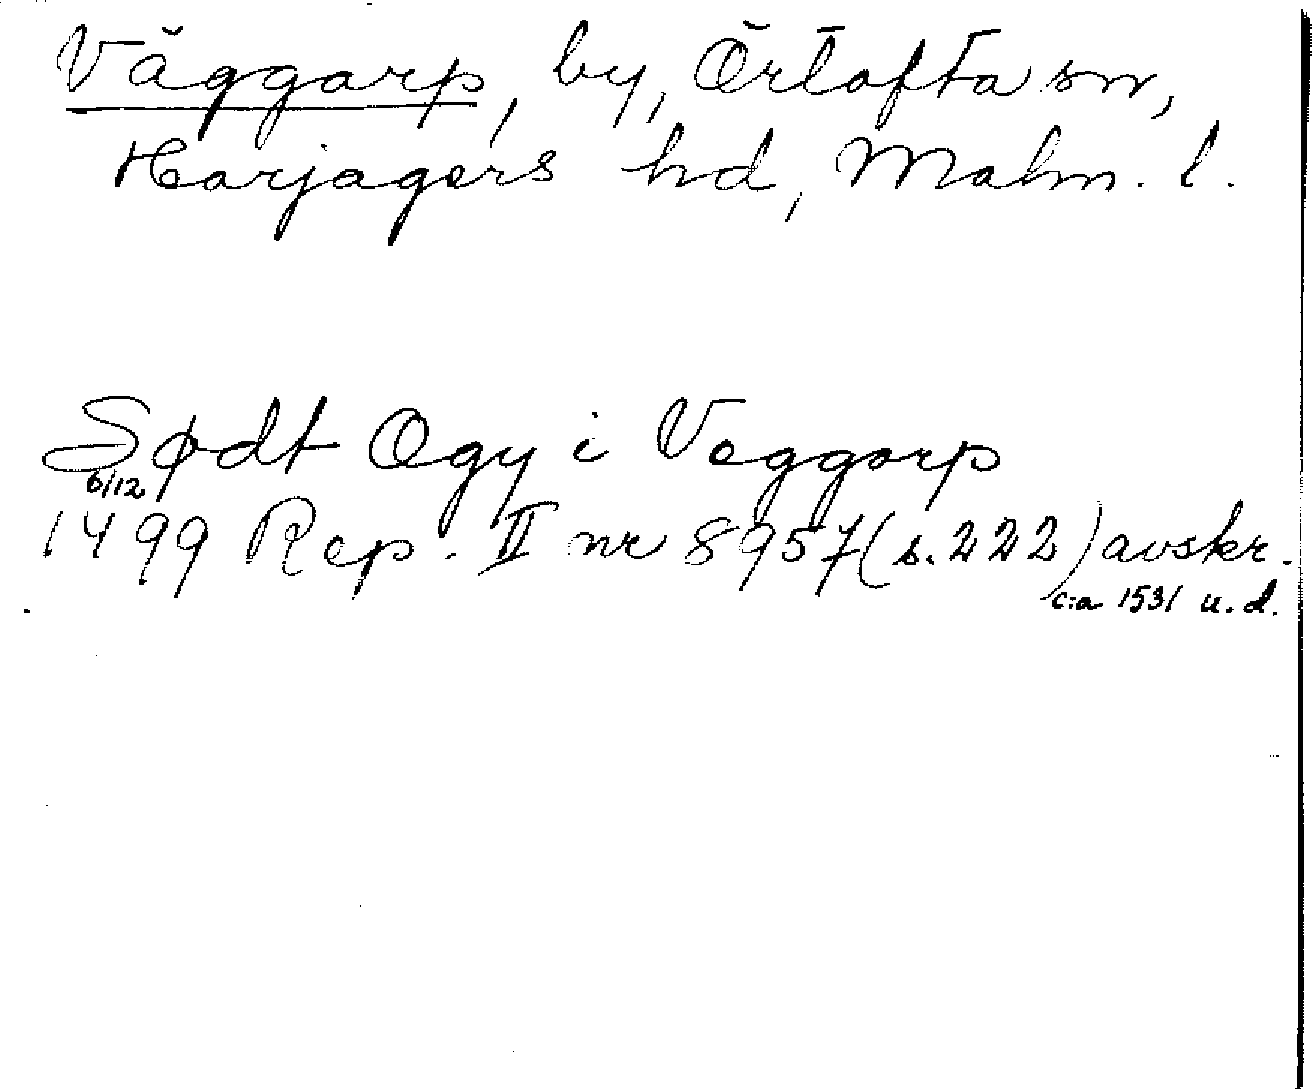 Väggarp, by, Örtofta sn,
Harjagers hd, Malm. l.
Sødt Ogy i Veggarp
6/12
1499 Rep. II nr 8957 (s. 222) avskr.
c:a 1531 u. d.